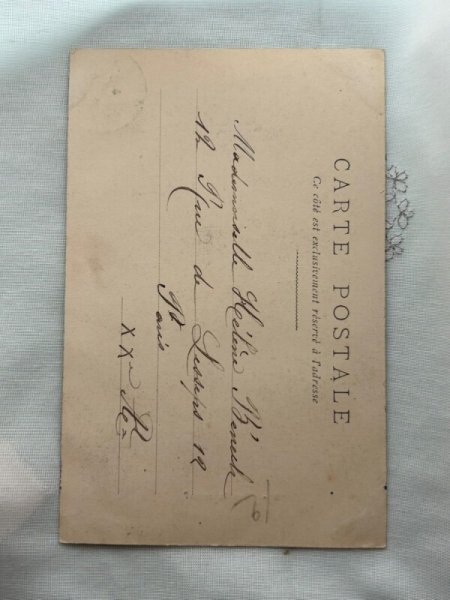 CARTE POSTALE
Ce côté est exclusivement réservé à l'adresse
Mademoiselle Hélène
12 Rue de Lesseps 12
Paris
XXe